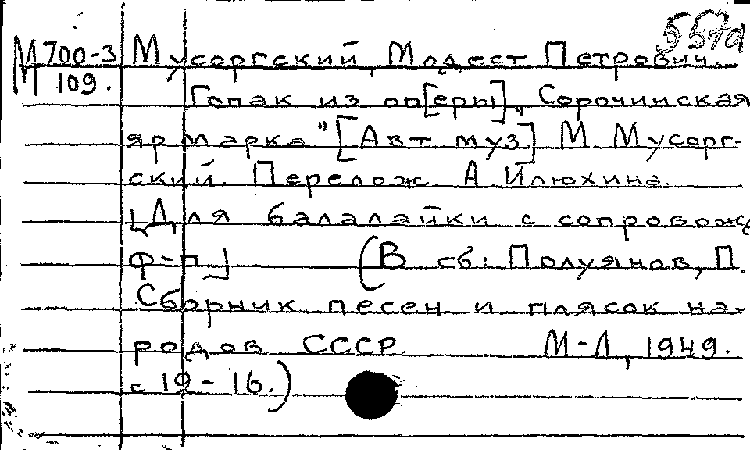 557а
М 700-3 Мусоргский, Модест Петрович.
109. Гопак из оп[еры] "Сорочинская
ярмарка" [Авт муз] М Мусорг-
ский. Перелож А Илюхина.
[Для балалайки с сопровожд
ф-п] (В сб: Полуянов, П.
Сборник песен и плясок на-
родов СССР М-Л, 1949.
с 10-16.)